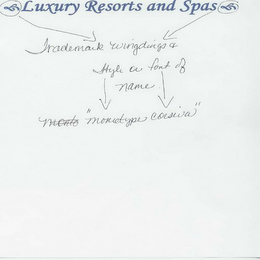 Luxury Resorts and Spas
Trademark wingdings &
style or font of
name
"monotype corsiva"